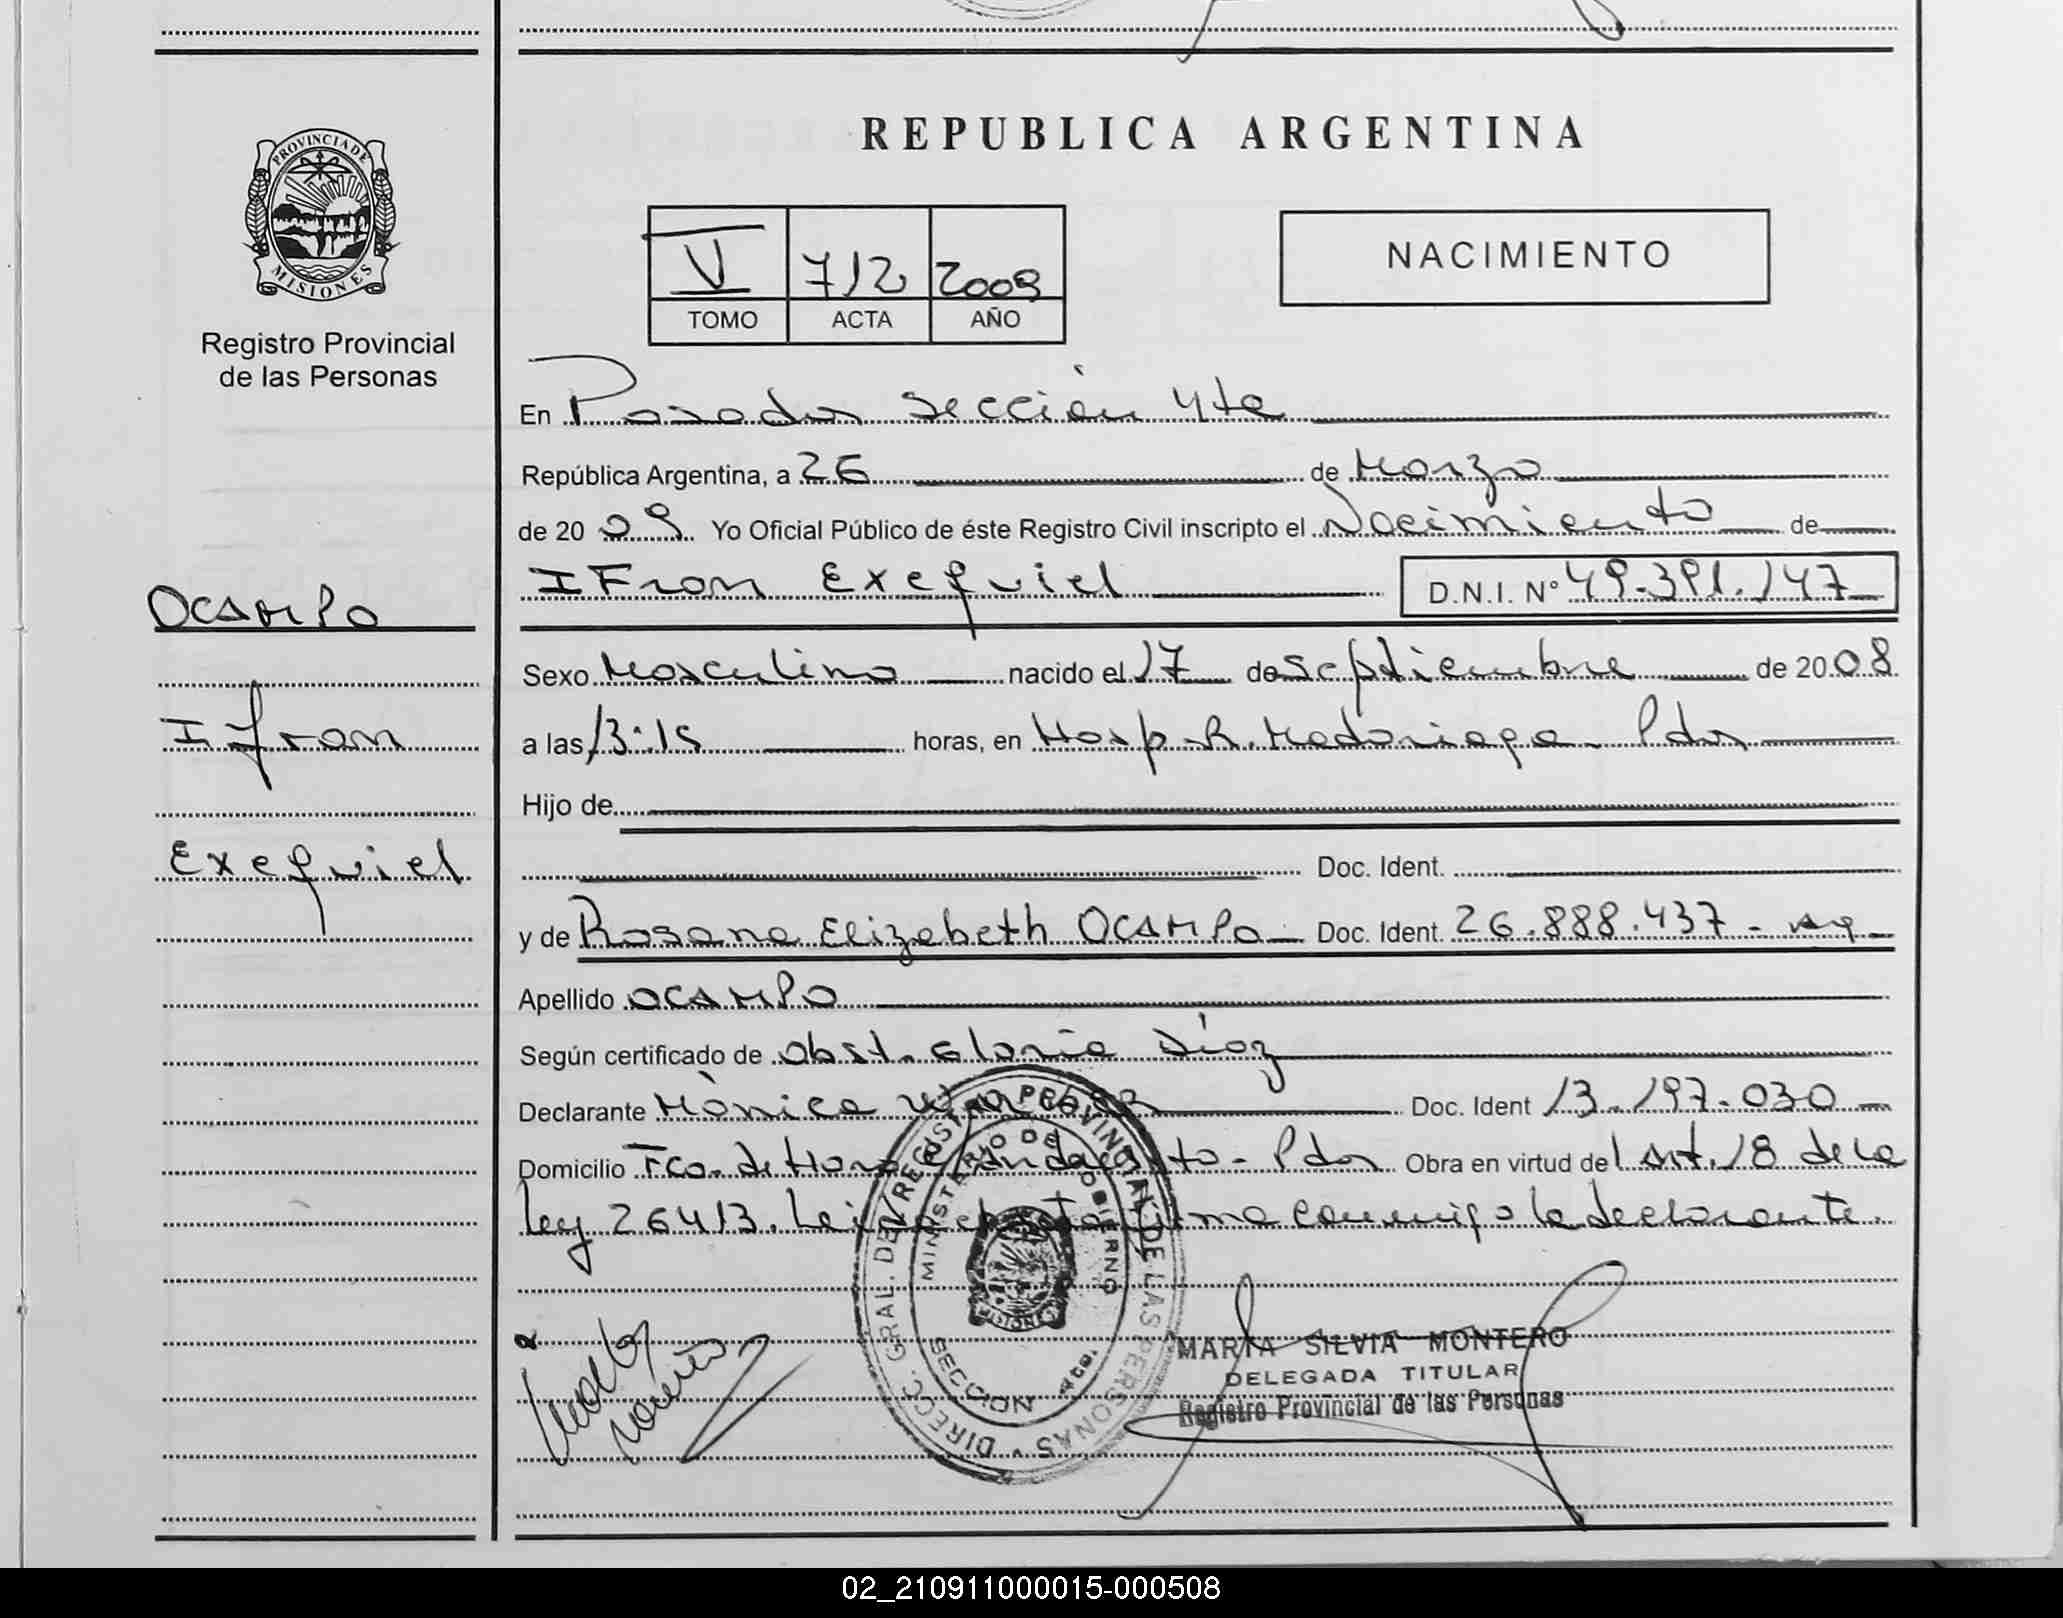 REPUBLICA ARGENTINA
PROVINCIA DE
MISIONES
Registro Provincial
de las Personas
V 712 2009
TOMO ACTA AÑO
NACIMIENTO
En Posadas Sección 4ta
República Argentina, a 26 de Marzo
de 2009 Yo Oficial Público de éste Registro Civil inscripto el Nacimiento de
IFran Exequiel D.N.I. Nº 49.391.147
OCAMPO
Ifran
Exequiel
Sexo Masculino nacido el 17 de Septiembre de 2008
a las 13:15 horas, en Hosp. R. Madariaga - Pdas
Hijo de
Doc. Ident.
y de Rosana Elizabeth OCAMPO - Doc. Ident. 26.888.437 -
Apellido OCAMPO
Según certificado de Obst. Gloria Díaz
Declarante Mònica Doc. Ident 13.197.030 -
Domicilio Fco. de Haro - Pdas Obra en virtud del Art. 18 de la
Ley 26413. Leida el acta firma conmigo la declarante.
DIREC. GRAL. DEL REGISTRO PROVINCIAL DE LAS PERSONAS
MINISTERIO DE GOBIERNO
MISIONES
SECCION 4ta.
MARIA SILVIA MONTERO
DELEGADA TITULAR
Registro Provincial de las Personas
02_210911000015-000508